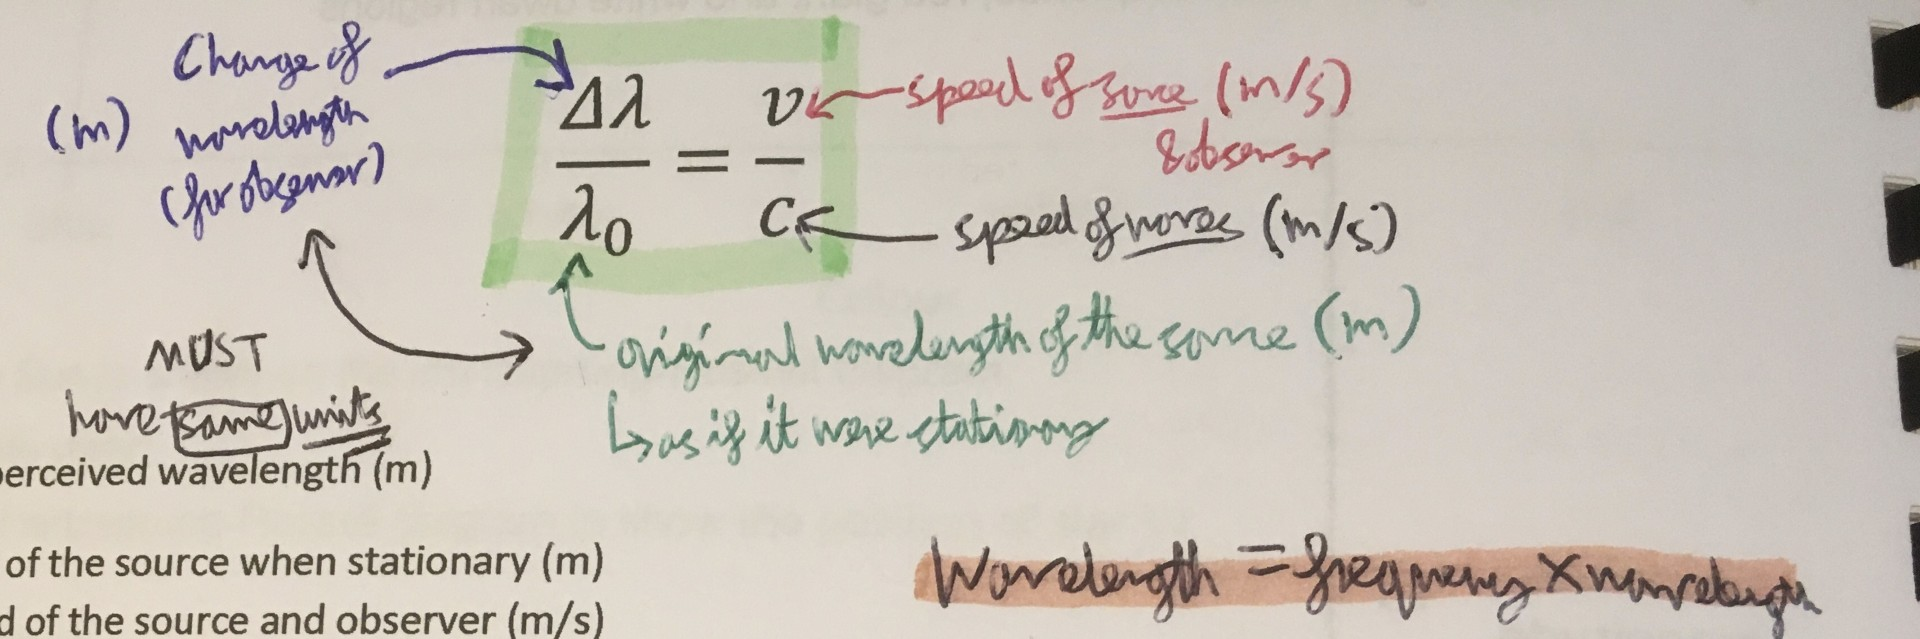 Change of
wavelength
(for observer)
(m)
Δλ / λ₀ = v / c
speed of source (m/s)
& observer
speed of waves (m/s)
original wavelength of the source (m)
↳ as if it were stationary
MUST
have same units
perceived wavelength (m)
of the source when stationary (m)
d of the source and observer (m/s)
Wavelength = frequency × wavelength